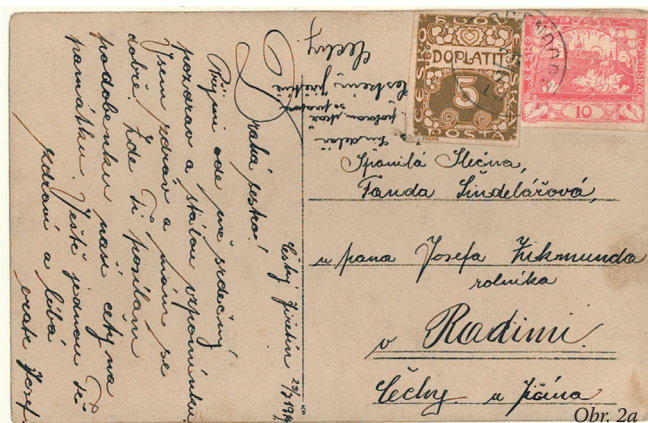 Český Jiřetín 29/7 1919
Drahá sestro!
Přijmi ode mě srdečný
pozdrav a stálou vzpomínku.
Jsem zdráv a mám se
dobře. Zde Ti posílám
podobenku naší cety na
památku. Ještě jednou Tě
zdraví a líbá
bratr Josef.
Šindelář
Českém Jiřetíně
Čechy
DOPLATIT
5
POŠTA
POŠTA
ČESKO
SLOVENSKÁ
10
Spanilá Slečna,
Fanda Šindelářová,
u pana Josefa Zikmunda
rolníka
v Radimi.
Čechy u Jičína
Obr. 2a